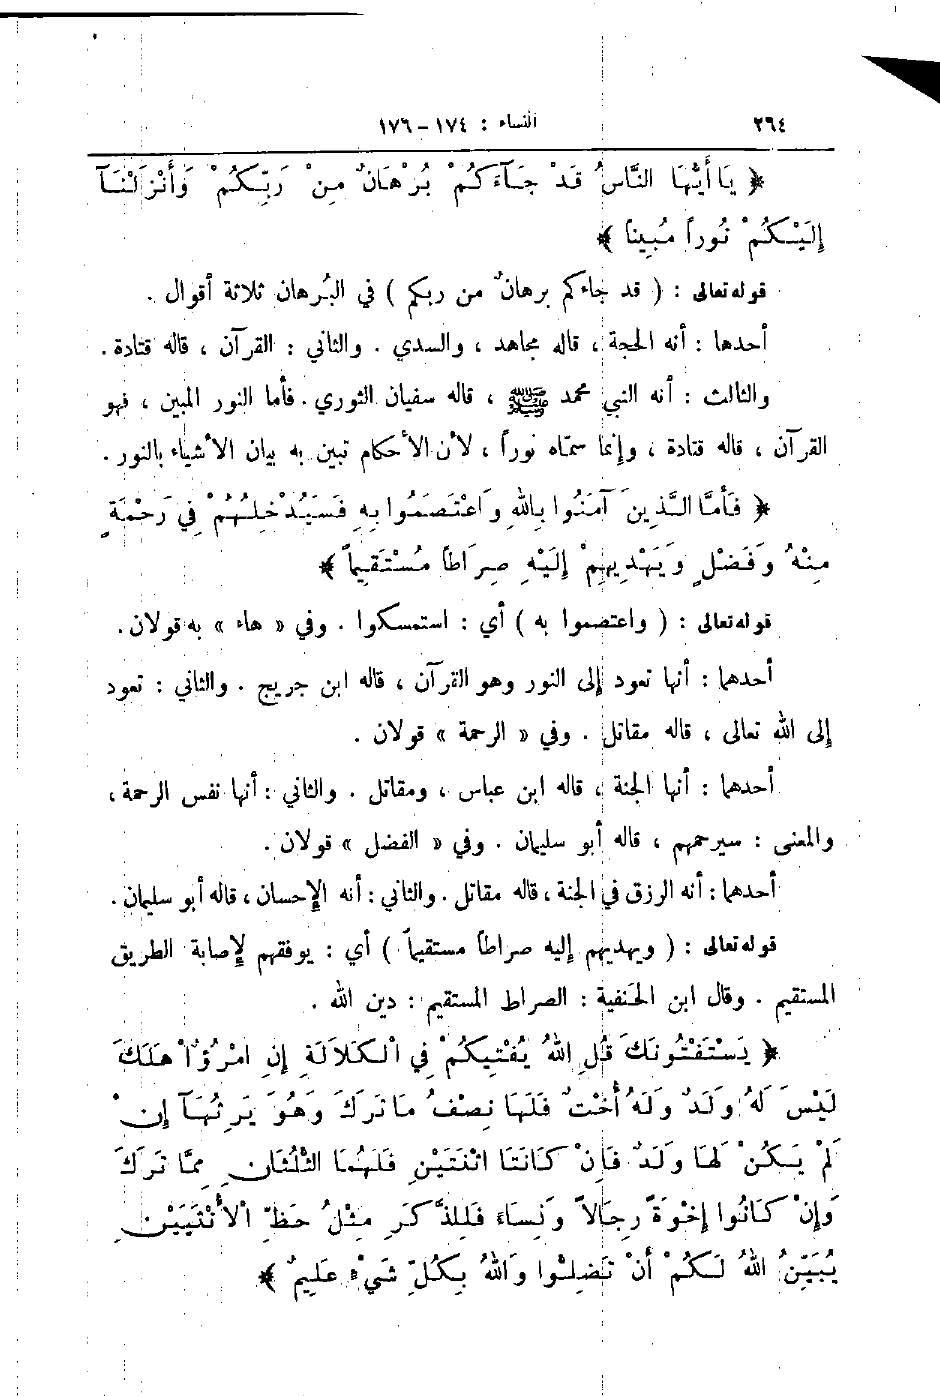 ٢٦٤
النساء : ١٧٤ – ١٧٦
﴿ يَا أَيُّهَا النَّاسُ قَدْ جَآءَكُمْ بُرْهَانٌ مِنْ رَبِّكُمْ وَأَنْزَلْنَآ
إِلَيْكُمْ نُوراً مُبِيناً ﴾
قوله تعالى : ( قد جاءكم برهانٌ من ربكم ) في البُرهان ثلاثة أقوال .
أحدها : أنه الحجة ، قاله مجاهد ، والسدي . والثاني : القرآن ، قاله قتادة .
والثالث : أنه النبي محمد ﷺ ، قاله سفيان الثوري . فأما النور المبين ، فهو
القرآن ، قاله قتادة ، وإنما سمّاه نوراً ، لأن الأحكام تبين به بيان الأشياء بالنور .
﴿ فَأَمَّا الَّذِينَ آمَنُوا بِاللهِ وَاعْتَصَمُوا بِهِ فَسَيُدْخِلُهُمْ فِي رَحْمَةٍ
مِنْهُ وَفَضْلٍ وَيَهْدِيهِمْ إِلَيْهِ صِرَاطاً مُسْتَقِيماً ﴾
قوله تعالى : ( واعتصموا به ) أي : استمسكوا . وفي « هاء » به قولان .
أحدهما : أنها تعود إلى النور وهو القرآن ، قاله ابن جريج . والثاني : تعود
إلى الله تعالى ، قاله مقاتل . وفي « الرحمة » قولان .
أحدهما : أنها الجنة ، قاله ابن عباس ، ومقاتل . والثاني : أنها نفس الرحمة ،
والمعنى : سيرحمهم ، قاله أبو سليمان . وفي « الفضل » قولان .
أحدهما : أنه الرزق في الجنة ، قاله مقاتل . والثاني : أنه الإحسان ، قاله أبو سليمان .
قوله تعالى : ( ويهديهم إليه صراطاً مستقيماً ) أي : يوفقهم لإصابة الطريق
المستقيم . وقال ابن الحنفية : الصراط المستقيم : دين الله .
﴿ يَسْتَفْتُونَكَ قُلِ اللهُ يُفْتِيكُمْ فِي الْكَلَالَةِ إِنِ امْرُؤٌا هَلَكَ
لَيْسَ لَهُ وَلَدٌ وَلَهُ أُخْتٌ فَلَهَا نِصْفُ مَا تَرَكَ وَهُوَ يَرِثُهَآ إِنْ
لَمْ يَكُنْ لَهَا وَلَدٌ فَإِنْ كَانَتَا اثْنَتَيْنِ فَلَهُمَا الثُّلُثَانِ مِمَّا تَرَكَ
وَإِنْ كَانُوا إِخْوَةً رِجَالاً وَنِسَاءً فَلِلذَّكَرِ مِثْلُ حَظِّ الْأُنْثَيَيْنِ
يُبَيِّنُ اللهُ لَكُمْ أَنْ تَضِلُّوا وَاللهُ بِكُلِّ شَيْءٍ عَلِيمٌ ﴾